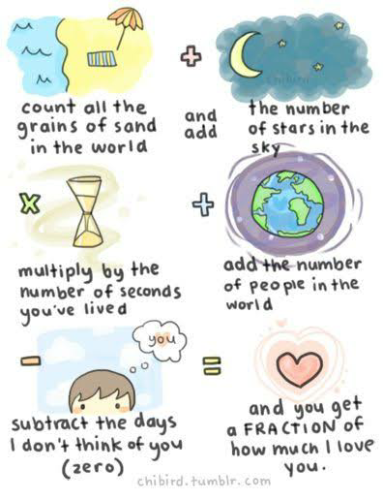 count all the
grains of sand
in the world
+
and
add
the number
of stars in the
sky
x
multiply by the
number of seconds
you've lived
+
add the number
of people in the
world
-
you
subtract the days
I don't think of you
(zero)
=
and you get
a FRACTION of
how much I love
you.
chibird.tumblr.com